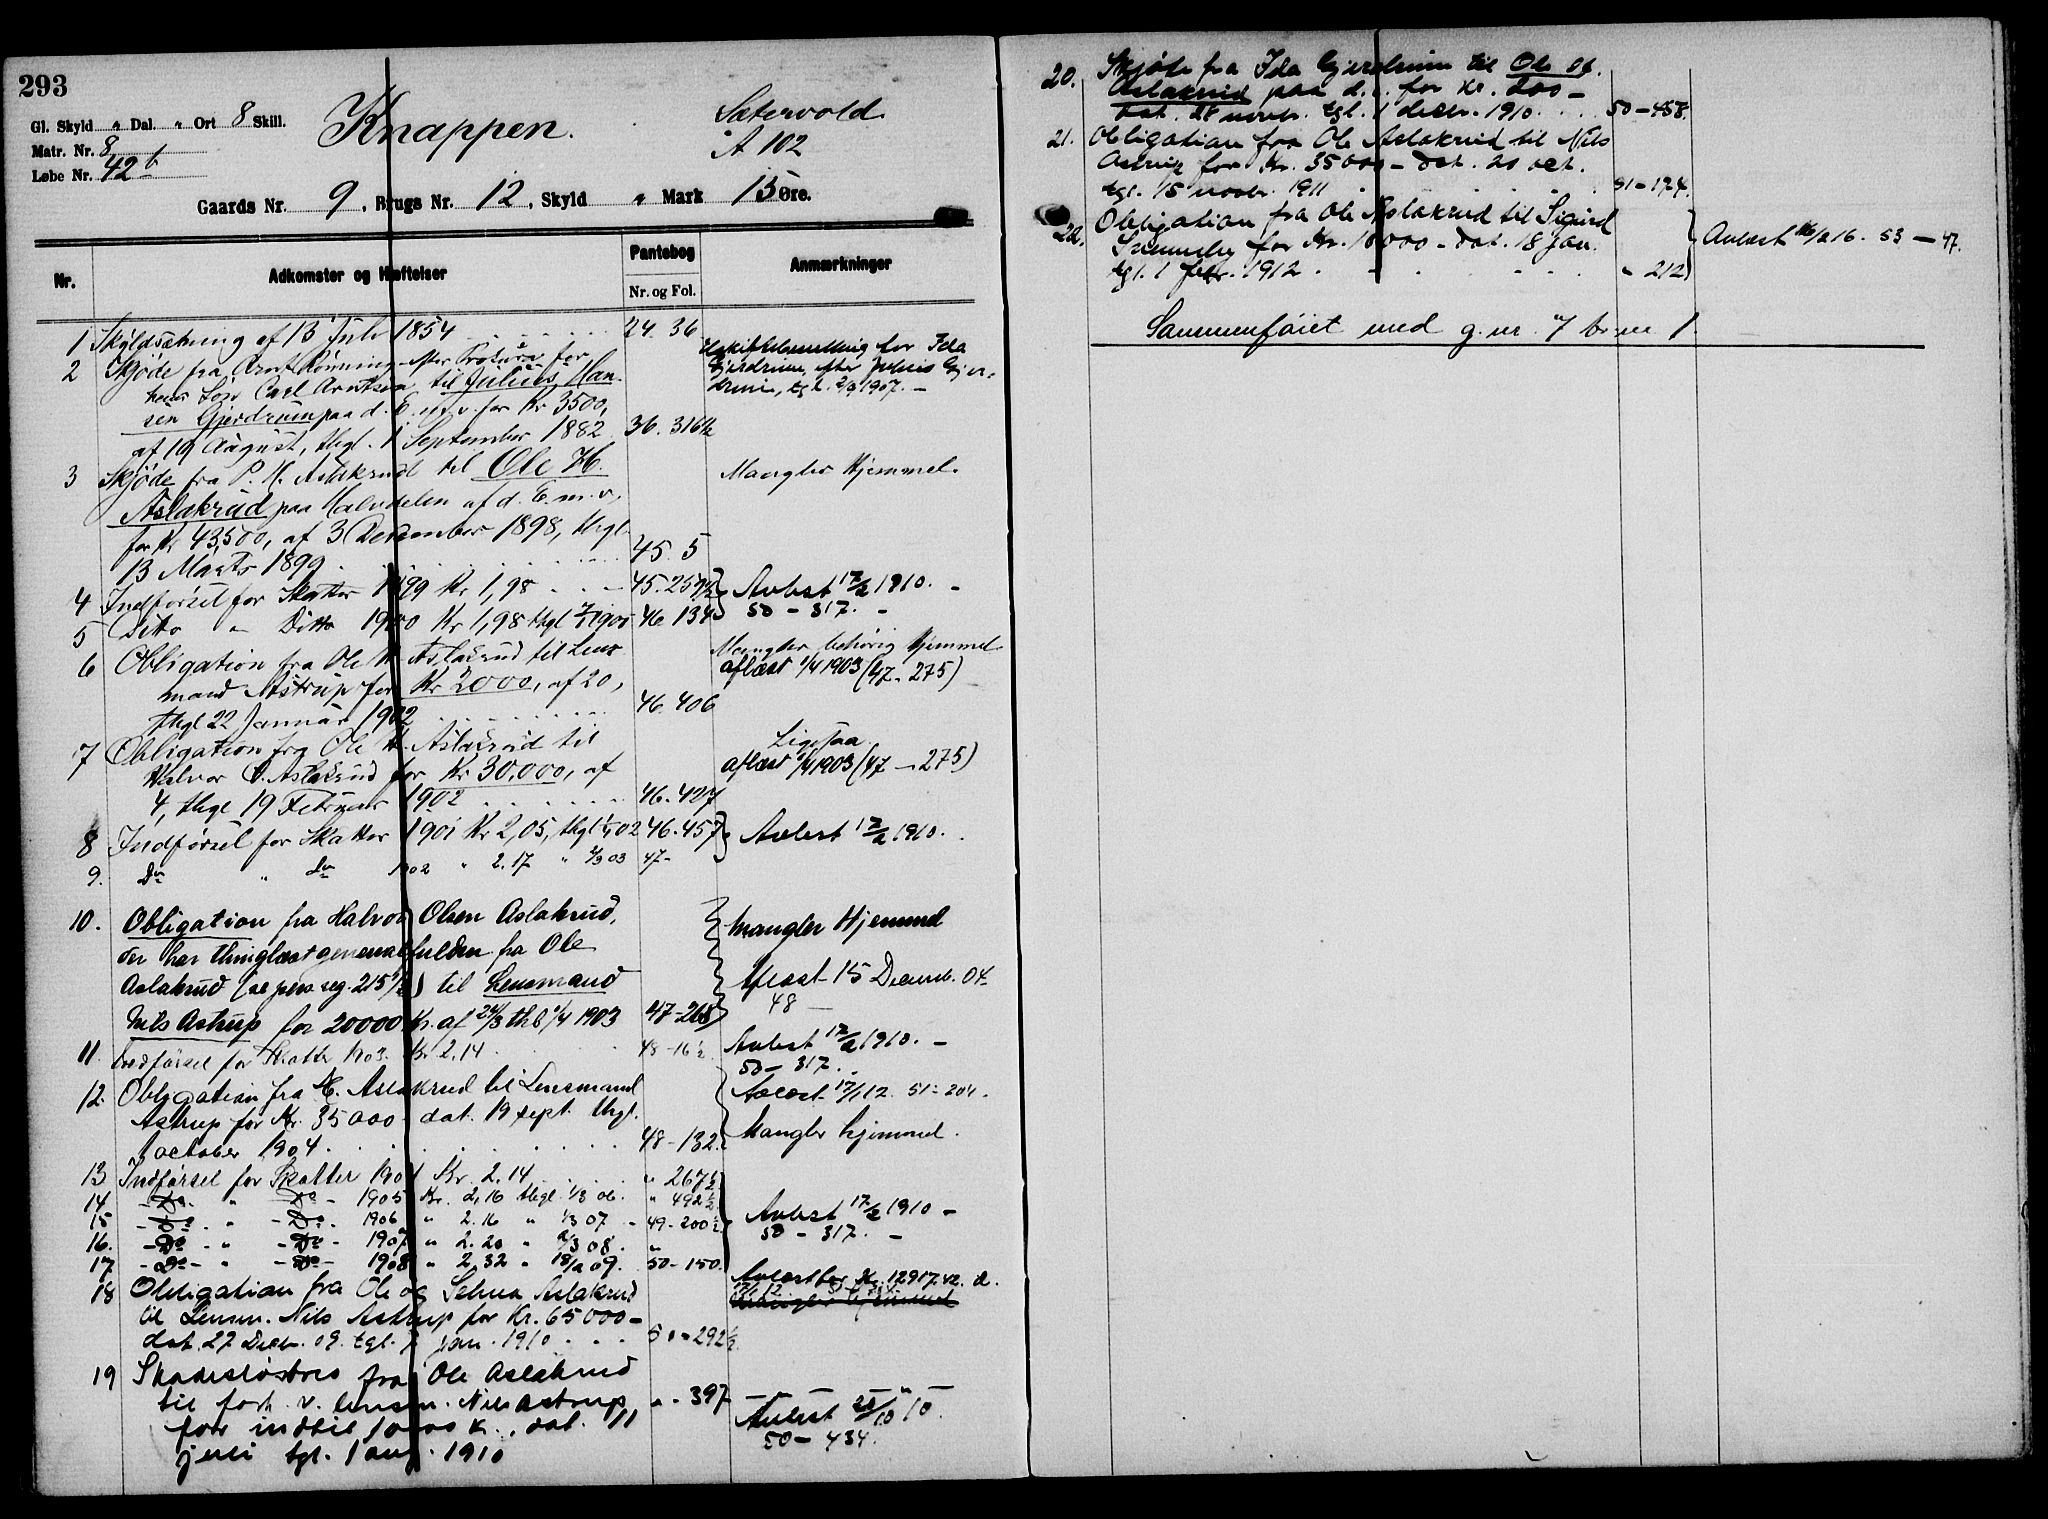 293
Gl. Skyld „ Dal. „ Ort 8 Skill.
Matr. Nr. 8
Løbe Nr. 42 b
Knappen.
Sætervold
A 102
Gaards Nr. 9, Brugs Nr. 12, Skyld „ Mark 15 Øre.
Nr.
Adkomster og Hæftelser
Pantebog
Nr. og Fol.
Anmærkninger
1 Skyldsætning af 13 Juli 1854 24. 36
2 Skjøde fra Arnt Rønningen efter Prokura for
hans Søn Carl Arntsen til Julius Han-
sen Gjerdrum paa d. E. m. v. for Kr 3500,
af 19 August, thgl. 1 September 1882 36. 316½
Uskiftebevilling for Ida
Gjerdrum, efter Julius Gjer-
drum, tgl. 2/9 1907. –
3 Skjøde fra P. H. Aslakrud til Ole H.
Aslakrud paa Halvdelen af d. E. m. v.
for Kr 43,500, af 3 December 1898, thgl.
13 Marts 1899 45. 5
Mangler Hjemmel.
4 Indførsel for Skatter 1899 Kr 1,98 45. 257½
5 Ditto „ Ditto 1900 Kr 1,98 thgl 1900 46. 134
Avlæst 17/2 1910. –
50 – 317. –
6 Obligation fra Ole H. Aslakrud til Lens-
mand Astrup for Kr 2000, af 20,
thgl 22 Januar 1902 46. 406
Mangler behørig Hjemmel
aflæst 1/4 1903 (47 – 275)
7 Obligation fra Ole H. Aslakrud til
Halvor O. Aslakrud for Kr 30,000, af
4, thgl 19 Februar 1902 46. 427
Ligesaa.
aflæst 1/4 1903 (47 – 275)
8 Indførsel for Skatter 1901 Kr 2,05, thgl 02 46. 457
9. Do „ do 1902 „ 2.17 „ 2/3 03 47-
Avlæst 17/2 1910.
10. Obligation fra Halvor Olsen Aslakrud,
der har thinglæst generalfuldm fra Ole
Aslakrud (se pers reg. 215½) til Lensmand
Nils Astrup for 20000 Kr. af 24/3 thl 1/4 1903 47-268
Mangler Hjemmel
Aflæst 15 Decemb. 04
48 –
11. Indførsel for Skatter 1903. Kr 2.14 48-16½
Avlæst 17/2 1910. –
50 – 317.
12. Obligation fra H. Aslakrud til Lensmand
Astrup for Kr. 35000 – dat. 19 sept. thgl.
1 october 1904. 48-132.
Avlæst 17/1 12. 51-204.
Mangler hjemmel.
13 Indførsel for Skatter 1904 Kr. 2.14 „ 267½
14 – Do – „ – Do – 1905 Kr. 2,16 thgl. 1/3 06. „ 492½
15 – Do – „ – Do – 1906 „ 2.16 „ 1/3 07 – 49-200½
16. – Do – „ – Do – 1907 „ 2.20 „ 2/3 08. „
17 – Do – „ – Do – 1908 „ 2.32 „ 18/2 09. 50-150.
Avlæst 17/2 1910 –
50 – 317. –
18 Obligation fra Ole og Selma Aslakrud
til Lensm. Nils Astrup for Kr. 65000 –
dat. 27 Decbr. 09. tgl. 7 jan. 1910 50-292½
Avlæst for Kr. 12917.42. d.
17/1 12
Mangler hjemmel
19 Skadesløsbrev fra Ole Aslakrud
til forh. v. lensm. Nils Astrup „ - 397
for indtil 10000 kr., dat. 11
juli tgl. 1 aug. 1910
Avlæst 25/10 10.
50 – 434.
20. Skjøde fra Ida Gjerdrum til Ole H.
Aslakrud paa d. e. for Kr. 200 –
Dat. 28 novbr. tgl. 1 decbr. 1910. 50-458.
21. Obligation fra Ole Aslakrud til Nils
Astrup for Kr. 35000 – dat. 20 oct.
tgl. 15 novbr. 1911 51-174.
22. Obligation fra Ole Aslakrud til Sigurd
for Kr. 10000 – dat. 18 jan.
tgl. 1 febr. 1912. „ 212
Avlæst 16/2 16. 53 – 47.
Sammenføiet med g. nr. 7 br. nr 1.